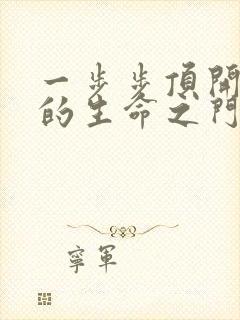 一步步頂開
的生命之門
寧軍